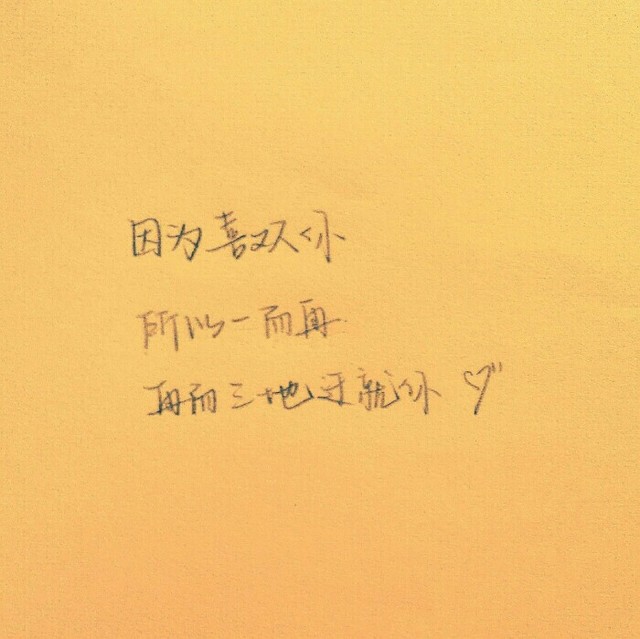 因为喜欢你
所以一而再
再而三地迁就你♡